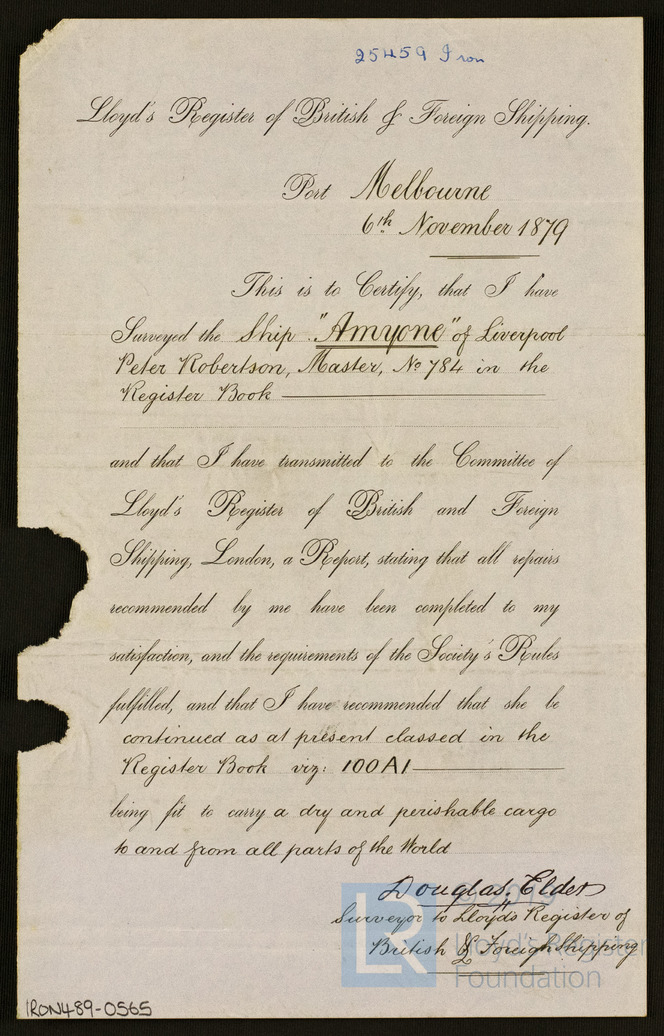 25459 Iron
Lloyd's Register of British & Foreign Shipping.
Port Melbourne
6th November 1879
This is to Certify, that I have
Surveyed the Ship "Amyone" of Liverpool
Peter Robertson, Master, No 784 in the
Register Book
and that I have transmitted to the Committee of
Lloyd's Register of British and Foreign
Shipping, London, a Report, stating that all repairs
recommended by me have been completed to my
satisfaction, and the requirements of the Society's Rules
fulfilled, and that I have recommended that she be
continued as at present classed in the
Register Book viz: 100A1
being fit to carry a dry and perishable cargo
to and from all parts of the World
Douglas. Elder
Surveyor to Lloyds Register of
British & Foreign Shipping
LR
Lloyd's Register
Foundation
IRON489-0565